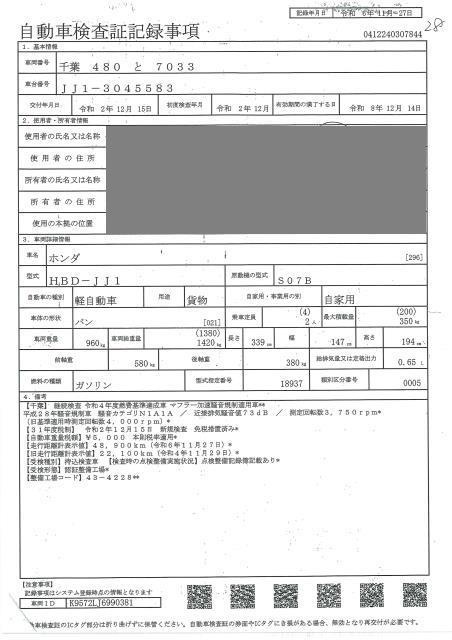 記録年月日 令和 6年11月27日
28
自動車検査証記録事項
0412240307844
1．基本情報
車両番号 千葉 480 と 7033
車台番号 JJ1-3045583
交付年月日 令和 2年12月15日 初度検査年月 令和 2年12月 有効期間の満了する日 令和 8年12月14日
2．使用者・所有者情報
使用者の氏名又は名称
使用者の住所
所有者の氏名又は名称
所有者の住所
使用の本拠の位置
3．車両詳細情報
車名 ホンダ [296]
型式 HBD-JJ1 原動機の型式 S07B
自動車の種別 軽自動車 用途 貨物 自家用・事業用の別 自家用
車体の形状 バン [021] 乗車定員 (4) 2人 最大積載量 (200) 350kg
車両重量 960kg 車両総重量 (1380) 1420kg 長さ 339cm 幅 147cm 高さ 194cm
前軸重 580kg 後軸重 380kg 総排気量又は定格出力 0.65L
燃料の種類 ガソリン 型式指定番号 18937 類別区分番号 0005
4．備考
【千葉】 継続検査 令和4年度燃費基準達成車 マフラー加速騒音規制適用車**
平成28年騒音規制車 騒音カテゴリN1A1A ／ 近接排気騒音値73dB ／ 測定回転数3,750rpm*
(旧基準適用時測定回転数4,000rpm)*
【31年度税制】 令和2年12月15日 新規検査 免税措置済み*
【自動車重量税額】¥5,000 本則税率適用*
【走行距離計表示値】48,900km (令和6年11月27日)*
【旧走行距離計表示値】22,100km (令和4年11月29日)*
【受検種別】持込検査車 【検査時の点検整備実施状況】点検整備記録簿記載あり*
【受検形態】認証整備工場*
【整備工場コード】43-4228**
【注意事項】
記録事項はシステム登録時点の情報となります
車両ID K9572LJ6990381
動車検査証のICタグ部分は折り曲げずに保管ください。自動車検査証の券面やICタグにき損がある場合、無効となり再交付が必要です。